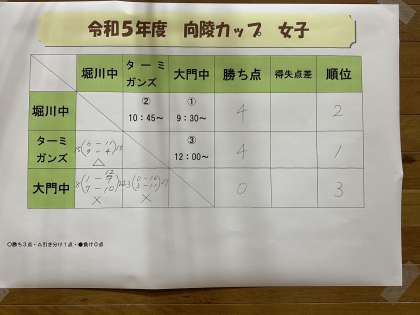 令和5年度 向陵カップ 女子
堀川中 ターミガンズ 大門中 勝ち点 得失点差 順位
堀川中 ② 10:45～ ① 9:30～ 4 2
ターミガンズ △ ③ 12:00～ 4 1
大門中 × × 0 3
○勝ち3点・△引き分け1点・●負け0点